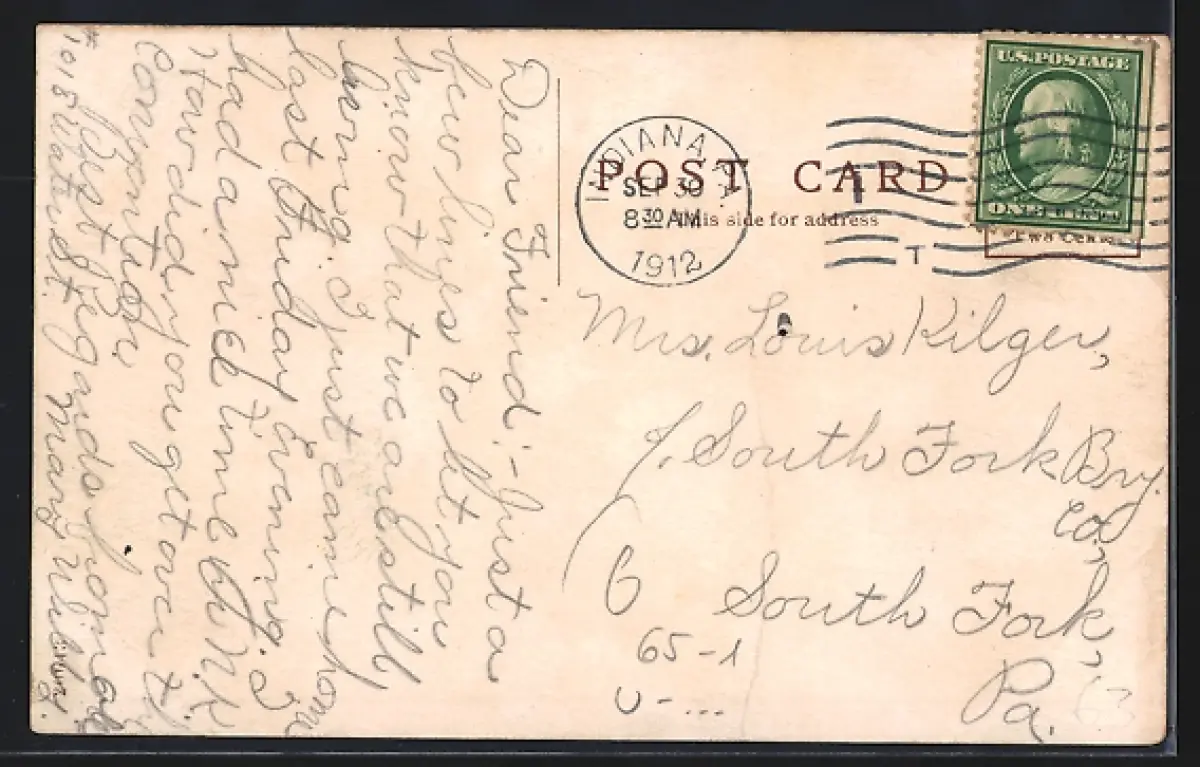 Dear Friend:- Just a
few lines to let you
know that we are still
living. I just came home
last Sunday Evening. I
had a nice time
How did you get over it
Best Regards from all
Mary
POST CARD
This side for address
INDIANA, PA
SEP 30
8 30 AM
1912
T
U.S. POSTAGE
Mrs. Louis Kilger,
South Fork Bry.
Co,
South Fork,
Pa.
6
65-1